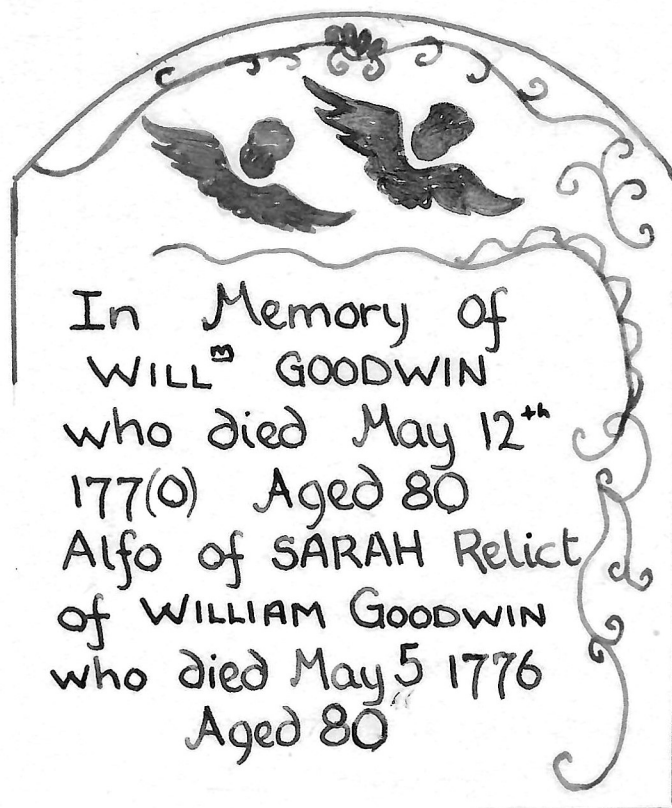 In Memory of
WILLᵐ GOODWIN
who died May 12ᵗʰ
177(0) Aged 80
Alſo of SARAH Relict
of WILLIAM GOODWIN
who died May 5 1776
Aged 80